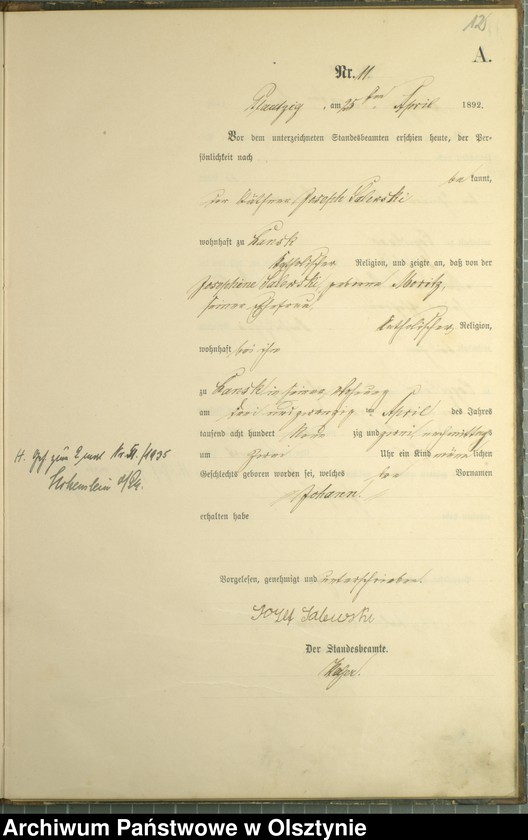 12
A.
Nr. 11.
Plautzig, am 25ten April 1892.
Vor dem unterzeichneten Standesbeamten erschien heute, der Per-
sönlichkeit nach
bekannt,
der Joseph Salewski
wohnhaft zu Lansk
katholischer Religion, und zeigte an, daß von der
Josephina Salewski, geborene Moritz,
seiner Ehefrau,
katholischer Religion,
wohnhaft bei ihm
zu Lansk in seiner Wohnung
am drei und zwanzigten April des Jahres
tausend acht hundert neunzig und zwei, nachmittags
um zwei Uhr ein Kind männlichen
Geschlechts geboren worden sei, welches den Vornamen
Johann
erhalten habe
H. Nr. 51/1935
Hohenstein
Vorgelesen, genehmigt und unterschrieben.
Jozef Salewski
Der Standesbeamte.
Archiwum Państwowe w Olsztynie